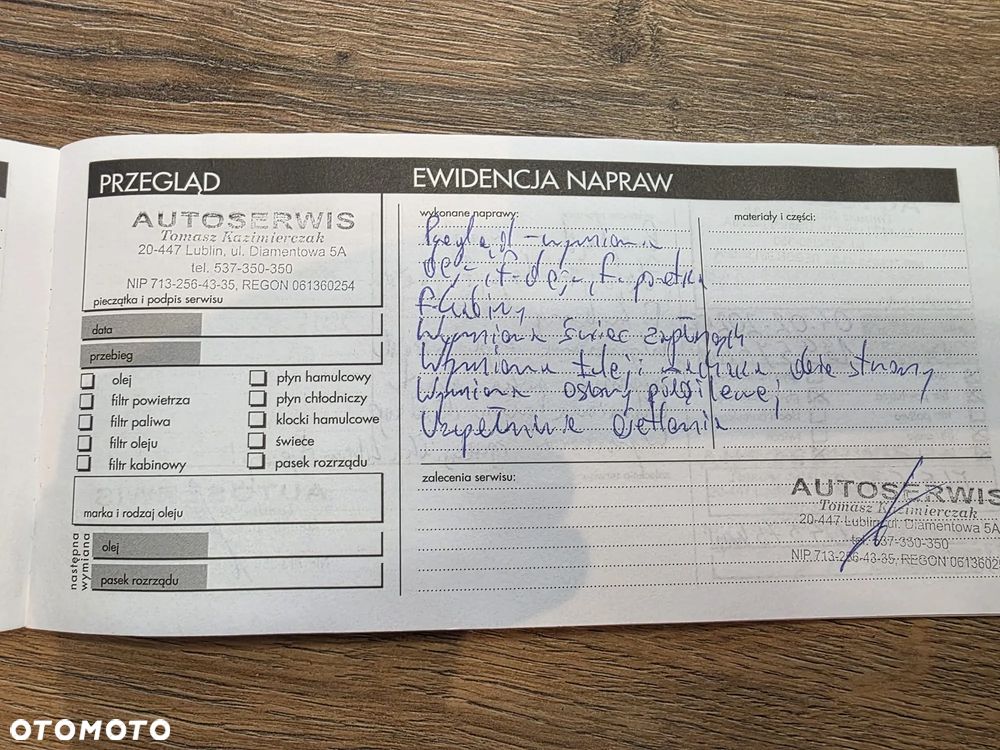 PRZEGLĄD
AUTOSERWIS
Tomasz Kazimierczak
20-447 Lublin, ul. Diamentowa 5A
tel. 537-350-350
NIP 713-256-43-35, REGON 061360254
pieczątka i podpis serwisu
data
przebieg
olej
filtr powietrza
filtr paliwa
filtr oleju
filtr kabinowy
płyn hamulcowy
płyn chłodniczy
klocki hamulcowe
świece
pasek rozrządu
marka i rodzaj oleju
następna wymiana
olej
pasek rozrządu
EWIDENCJA NAPRAW
wykonane naprawy:
materiały i części:
Przegląd - wymiana
Wymiana świec
Wymiana strony
Wymiana osłony półosi lewej
Uzupełnienie
zalecenia serwisu:
AUTOSERWIS
Tomasz Kazimierczak
20-447 Lublin, ul. Diamentowa 5A
tel. 537-350-350
NIP 713-256-43-35, REGON 06136025
OTOMOTO